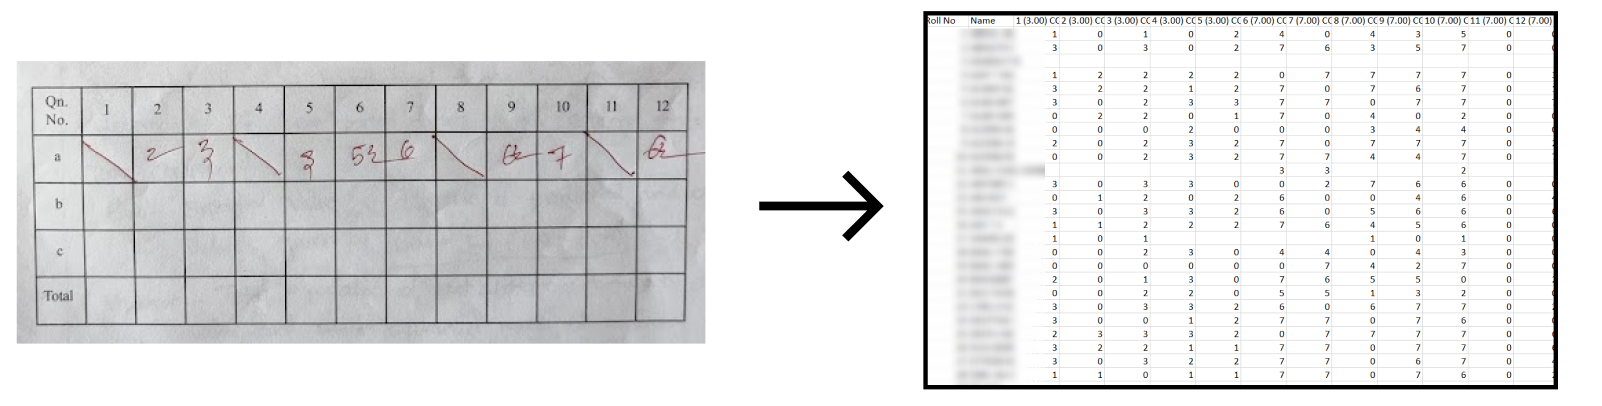 Qn. No. 1 2 3 4 5 6 7 8 9 10 11 12
a 2 3 3 5½ 6 6½ 7 6½
b
c
Total
Roll No Name 1 (3.00) CC 2 (3.00) CC 3 (3.00) CC 4 (3.00) CC 5 (3.00) CC 6 (7.00) CC 7 (7.00) CC 8 (7.00) CC 9 (7.00) CC 10 (7.00) C 11 (7.00) C 12 (7.00)
1 0 1 0 2 4 0 4 3 5 0
3 0 3 0 2 7 6 3 5 7 0
1 2 2 2 2 0 7 7 7 7 0
3 2 2 1 2 7 0 7 6 7 0
3 0 2 3 3 7 7 0 7 7 0
0 2 2 0 1 7 0 4 0 2 0
0 0 0 2 0 0 0 3 4 4 0
2 0 2 3 2 7 0 7 7 7 0
0 0 2 3 2 7 7 4 4 7 0
3 3 2
3 0 3 3 0 0 2 7 6 6 0
0 1 2 0 2 6 0 0 4 6 0
3 0 3 3 2 6 0 5 6 6 0
1 1 2 2 2 7 6 4 5 6 0
1 0 1 1 0 1 0
0 0 2 3 0 4 4 0 4 3 0
0 0 0 0 0 0 7 4 2 7 0
2 0 1 3 0 7 6 5 5 0 0
0 0 2 2 0 5 5 1 3 2 0
3 0 3 3 2 6 0 6 7 7 0
3 0 0 1 2 7 7 0 7 6 0
2 3 3 3 2 0 7 7 7 7 0
3 2 2 1 1 7 7 0 7 7 0
3 0 3 2 2 7 7 0 6 7 0
1 1 0 1 1 7 7 0 7 6 0